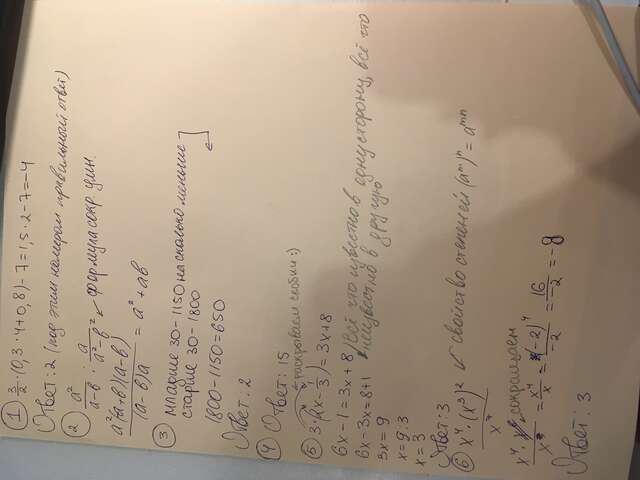 ① 3/2 · (0,3 · 4 + 0,8) - 7 = 1,5 · 2 - 7 = -4
Ответ: 2 (под этим номером правильный ответ)
② a²/a-b : a/a²-b² ↙ формула сокр умн.
a²(a+b)(a-b)/(a-b)a = a² + ab
③ младше 30 - 1150 на сколько меньше
старше 30 - 1800
1800 - 1150 = 650
Ответ: 2
④ Ответ: 15
⑤ 3 · (2x - 1/3) = 3x + 8 раскрываем скобки :)
6x - 1 = 3x + 8 всё что известно в одну сторону, всё что
6x - 3x = 8 + 1 неизвестно в другую
3x = 9
x = 9 : 3
x = 3
Ответ: 3
⑥ x⁴ · (x³)²/x⁷ ↙ свойство степеней (aᵐ)ⁿ = aᵐⁿ
сокращаем
= x⁴/x = (-2)⁴/-2 = 16/-2 = -8
Ответ: 3